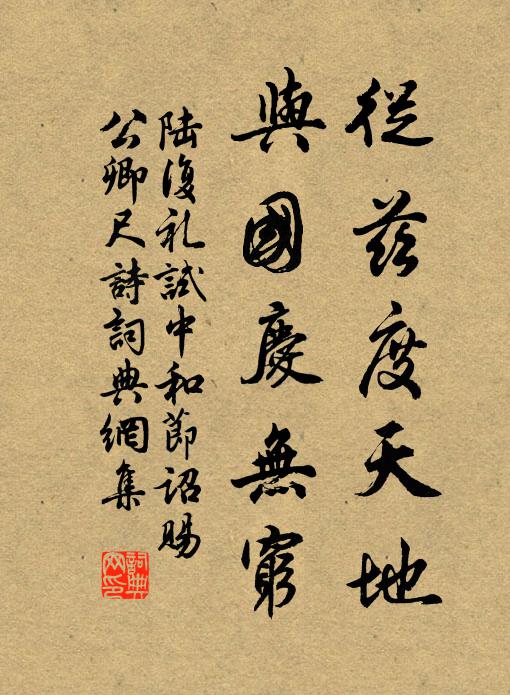 從茲度天地
與國慶無窮
陸復礼試中和節詔賜
公卿尺詩詞典網集
詞典
网印